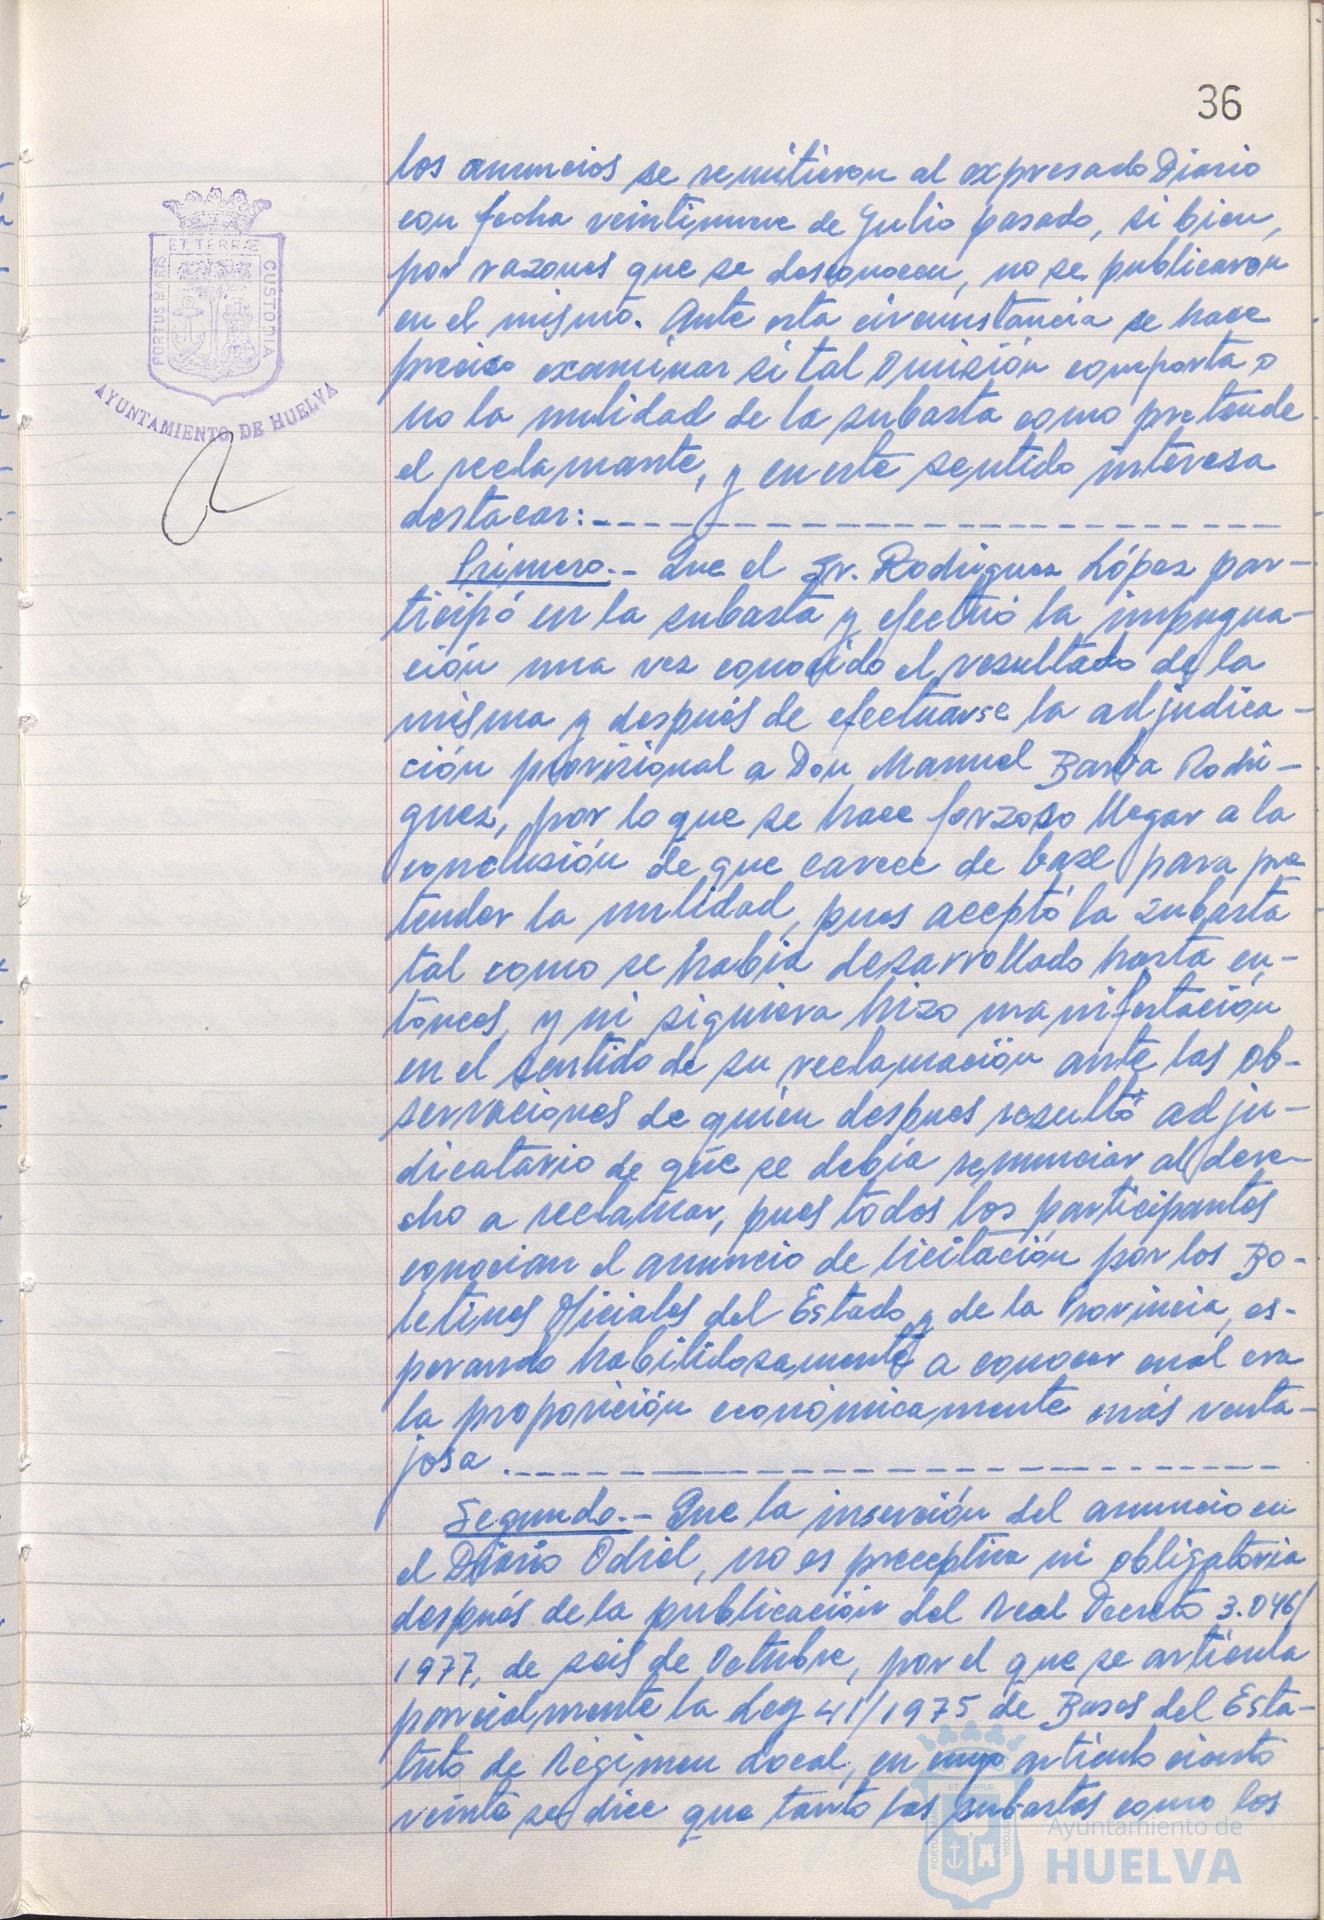 36
los anuncios se remitieron al expresado Diario
con fecha veintinueve de Julio pasado, si bien,
por razones que se desconocen, no se publicaron
en el mismo. Ante esta circunstancia se hace
preciso examinar si tal omisión comporta o
no la nulidad de la subasta como pretende
el reclamante, y en este sentido interesa
destacar:
Primero.- Que el Sr. Rodriguez López par-
ticipó en la subasta y efectuó la impugna-
ción una vez conocido el resultado de la
misma y después de efectuarse la adjudica-
ción provisional a Don Manuel Barba Rodri-
guez, por lo que se hace forzoso llegar a la
conclusión de que carece de base para pre
tender la nulidad, pues aceptó la subasta
tal como se había desarrollado hasta en-
tonces, y ni siquiera hizo manifestación
en el sentido de su reclamación ante las ob-
servaciones de quien despues resultó adju-
dicatario de que se debía renunciar al dere-
cho a reclamar, pues todos los participantes
conocian el anuncio de licitación por los Bo-
letines Oficiales del Estado y de la Provincia, es-
perando habilidosamente a conocer cual era
la proposición económicamente más venta-
josa.
Segundo.- Que la inserción del anuncio en
el Diario Odiel, no es preceptiva ni obligatoria
después de la publicación del Real Decreto 3.046/
1977, de seis de Octubre, por el que se articula
parcialmente la Ley 41/1975 de Bases del Esta-
tuto de Régimen Local, en cuyo artículo ciento
veinte se dice que tanto las subastas como los
ET TERRÆ
PORTUS MARIS
CUSTODIA
AYUNTAMIENTO DE HUELVA
Ayuntamiento de
HUELVA